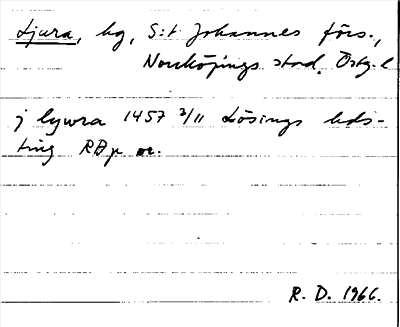 Ljura, hg, S:t Johannes förs.,
Norrköpings stad, Östg. l
j lywra 1457 2/11 Lösings hds-
ting RAp or.
R. D. 1966.